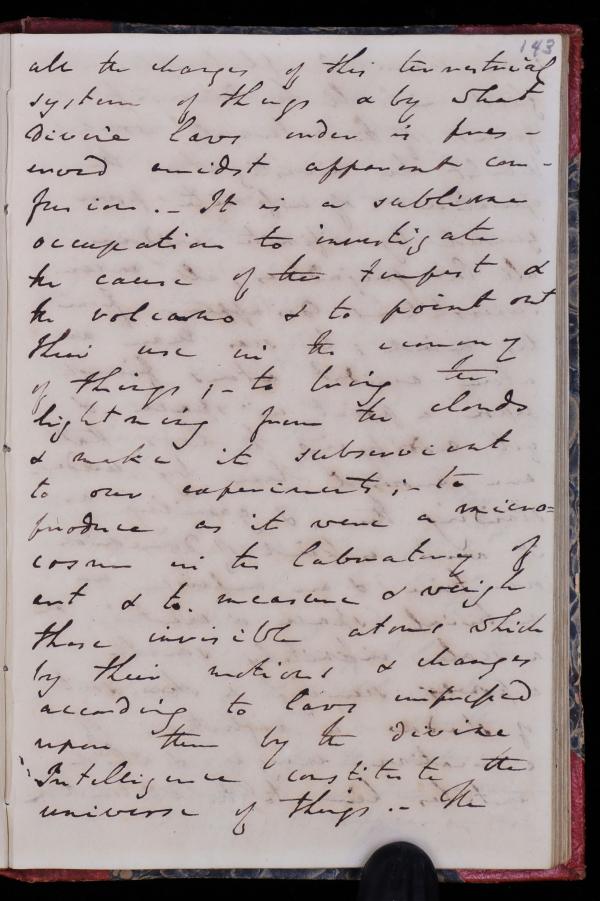 143
all the changes of this terrestrial
system of things & by what
Divine laws order is pres-
erved amidst apparent con-
fusion. - It is a sublime
occupation to investigate
the cause of the tempest &
the volcano & to point out
their use in the economy
of things; - to bring the
lightning from the clouds
& make it subservient
to our experiments; - to
produce as it were a micro=
cosm in the laboratory of
art & to measure & weigh
those invisible atoms which
by their motions & changes
according to laws impressed
upon them by the divine
Intelligence constitute the
universe of things. - The